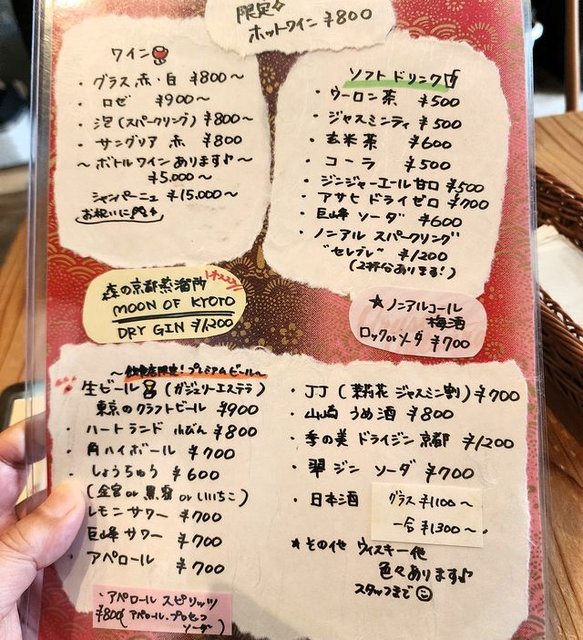 限定
ホットワイン ¥800
ワイン
・グラス 赤・白 ¥800〜
・ロゼ ¥900〜
・泡(スパークリング) ¥800〜
・サングリア 赤 ¥800
〜ボトルワインあります♪〜
¥5,000〜
シャンパーニュ ¥15,000〜
お祝いに
ソフトドリンク
・ウーロン茶 ¥500
・ジャスミンティ ¥500
・玄米茶 ¥600
・コーラ ¥500
・ジンジャーエール甘口 ¥500
・アサヒ ドライゼロ ¥700
・巨峰 ソーダ ¥600
・ノンアル スパークリング
"セレブレ" ¥1,200
(2杯分あります!)
森の京都蒸溜所
MOON OF KYOTO
DRY GIN ¥1,200
オススメ!
★ノンアルコール
梅酒
ロックorソーダ ¥700
〜飲食店限定!プレミアムビール〜
生ビール (ガジェリーエステラ)
東京のクラフトビール ¥900
・ハートランド 小びん ¥800
・角ハイボール ¥700
・しょうちゅう ¥600
(金宮 or 黒霧 or いいちこ)
レモンサワー ¥700
・巨峰サワー ¥700
・アペロール ¥700
・アペロール スピリッツ
¥800(アペロール、プロセッコ
ソーダ)
・JJ (茉莉花 ジャスミン割) ¥700
・山崎 うめ酒 ¥800
・季の美 ドライジン 京都 ¥1,200
・翠 ジン ソーダ ¥700
・日本酒 グラス ¥1100〜
一合 ¥1300〜
★その他 ウィスキー他
色々あります♪
スタッフまで